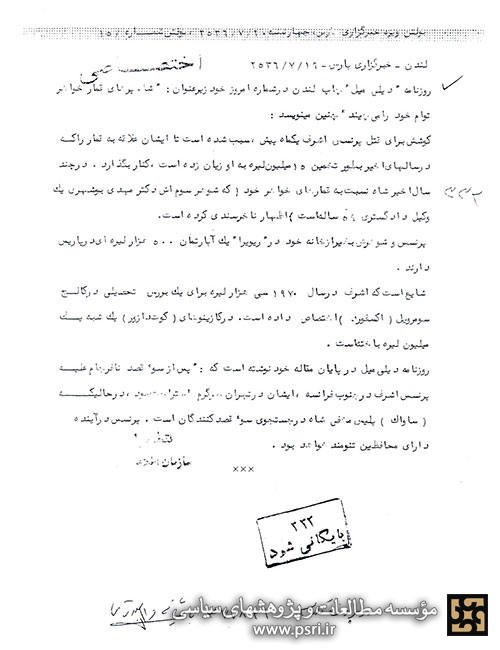 بولتن ویژه خبرگزاری پارس، چهارشنبه، ۲۵۳۶/۷/۲۰، بولتن شماره ۱۵۰
اختصاصی
لندن - خبرگزاری پارس - ۲۵۳۶/۷/۱۹
روزنامه " دیلی میل " چاپ لندن در شماره امروز خود زیر عنوان : " شاه پرهای قمار خواهر
توام خود را می چیند " چنین مینویسد :
کوشش برای قتل پرنسس اشرف یکماه پیش، سبب شده است تا ایشان علاقه به قمار را که
در سالهای اخیر بطور تخمین ۱۵ میلیون لیره به او زیان زده است، کنار بگذارد . در چند
سال اخیر شاه نسبت به قمارهای خواهر خود ( که شوهر سوم اش دکتر مهدی بوشهری یک
وکیل دادگستری ساله است ) اظهار نا خرسندی کرده است.
پرنسس و شوهرش بغیر از خانه خود در " ریویرا " یک آپارتمان ۵۰۰ هزار لیره ای در پاریس
دارند .
شایع است که اشرف در سال ۱۹۷۰ سی هزار لیره برای یک بورس تحصیلی در کالج
سومرویل ( اکسفورد ) اختصاص داده است. در کازینوهای ( کوت دازور ) یک شبه یک
میلیون لیره باخته است.
روزنامه دیلی میل در پایان مقاله خود نوشته است که : " پس از سو" قصد نافرجام علیه
پرنسس اشرف در جنوب فرانسه، ایشان در تهران سرگرم استراحت است، در حالیکه
( ساواک ) پلیس مخفی شاه در جستجوی سو" قصد کنندگان است . پرنسس در آینده
دارای محافظین تنومند خواهد بود .
سازمان
×××
۲۳۲
بایگانی شود
مؤسسه مطالعات و پژوهشهای سیاسی
www.psri.ir